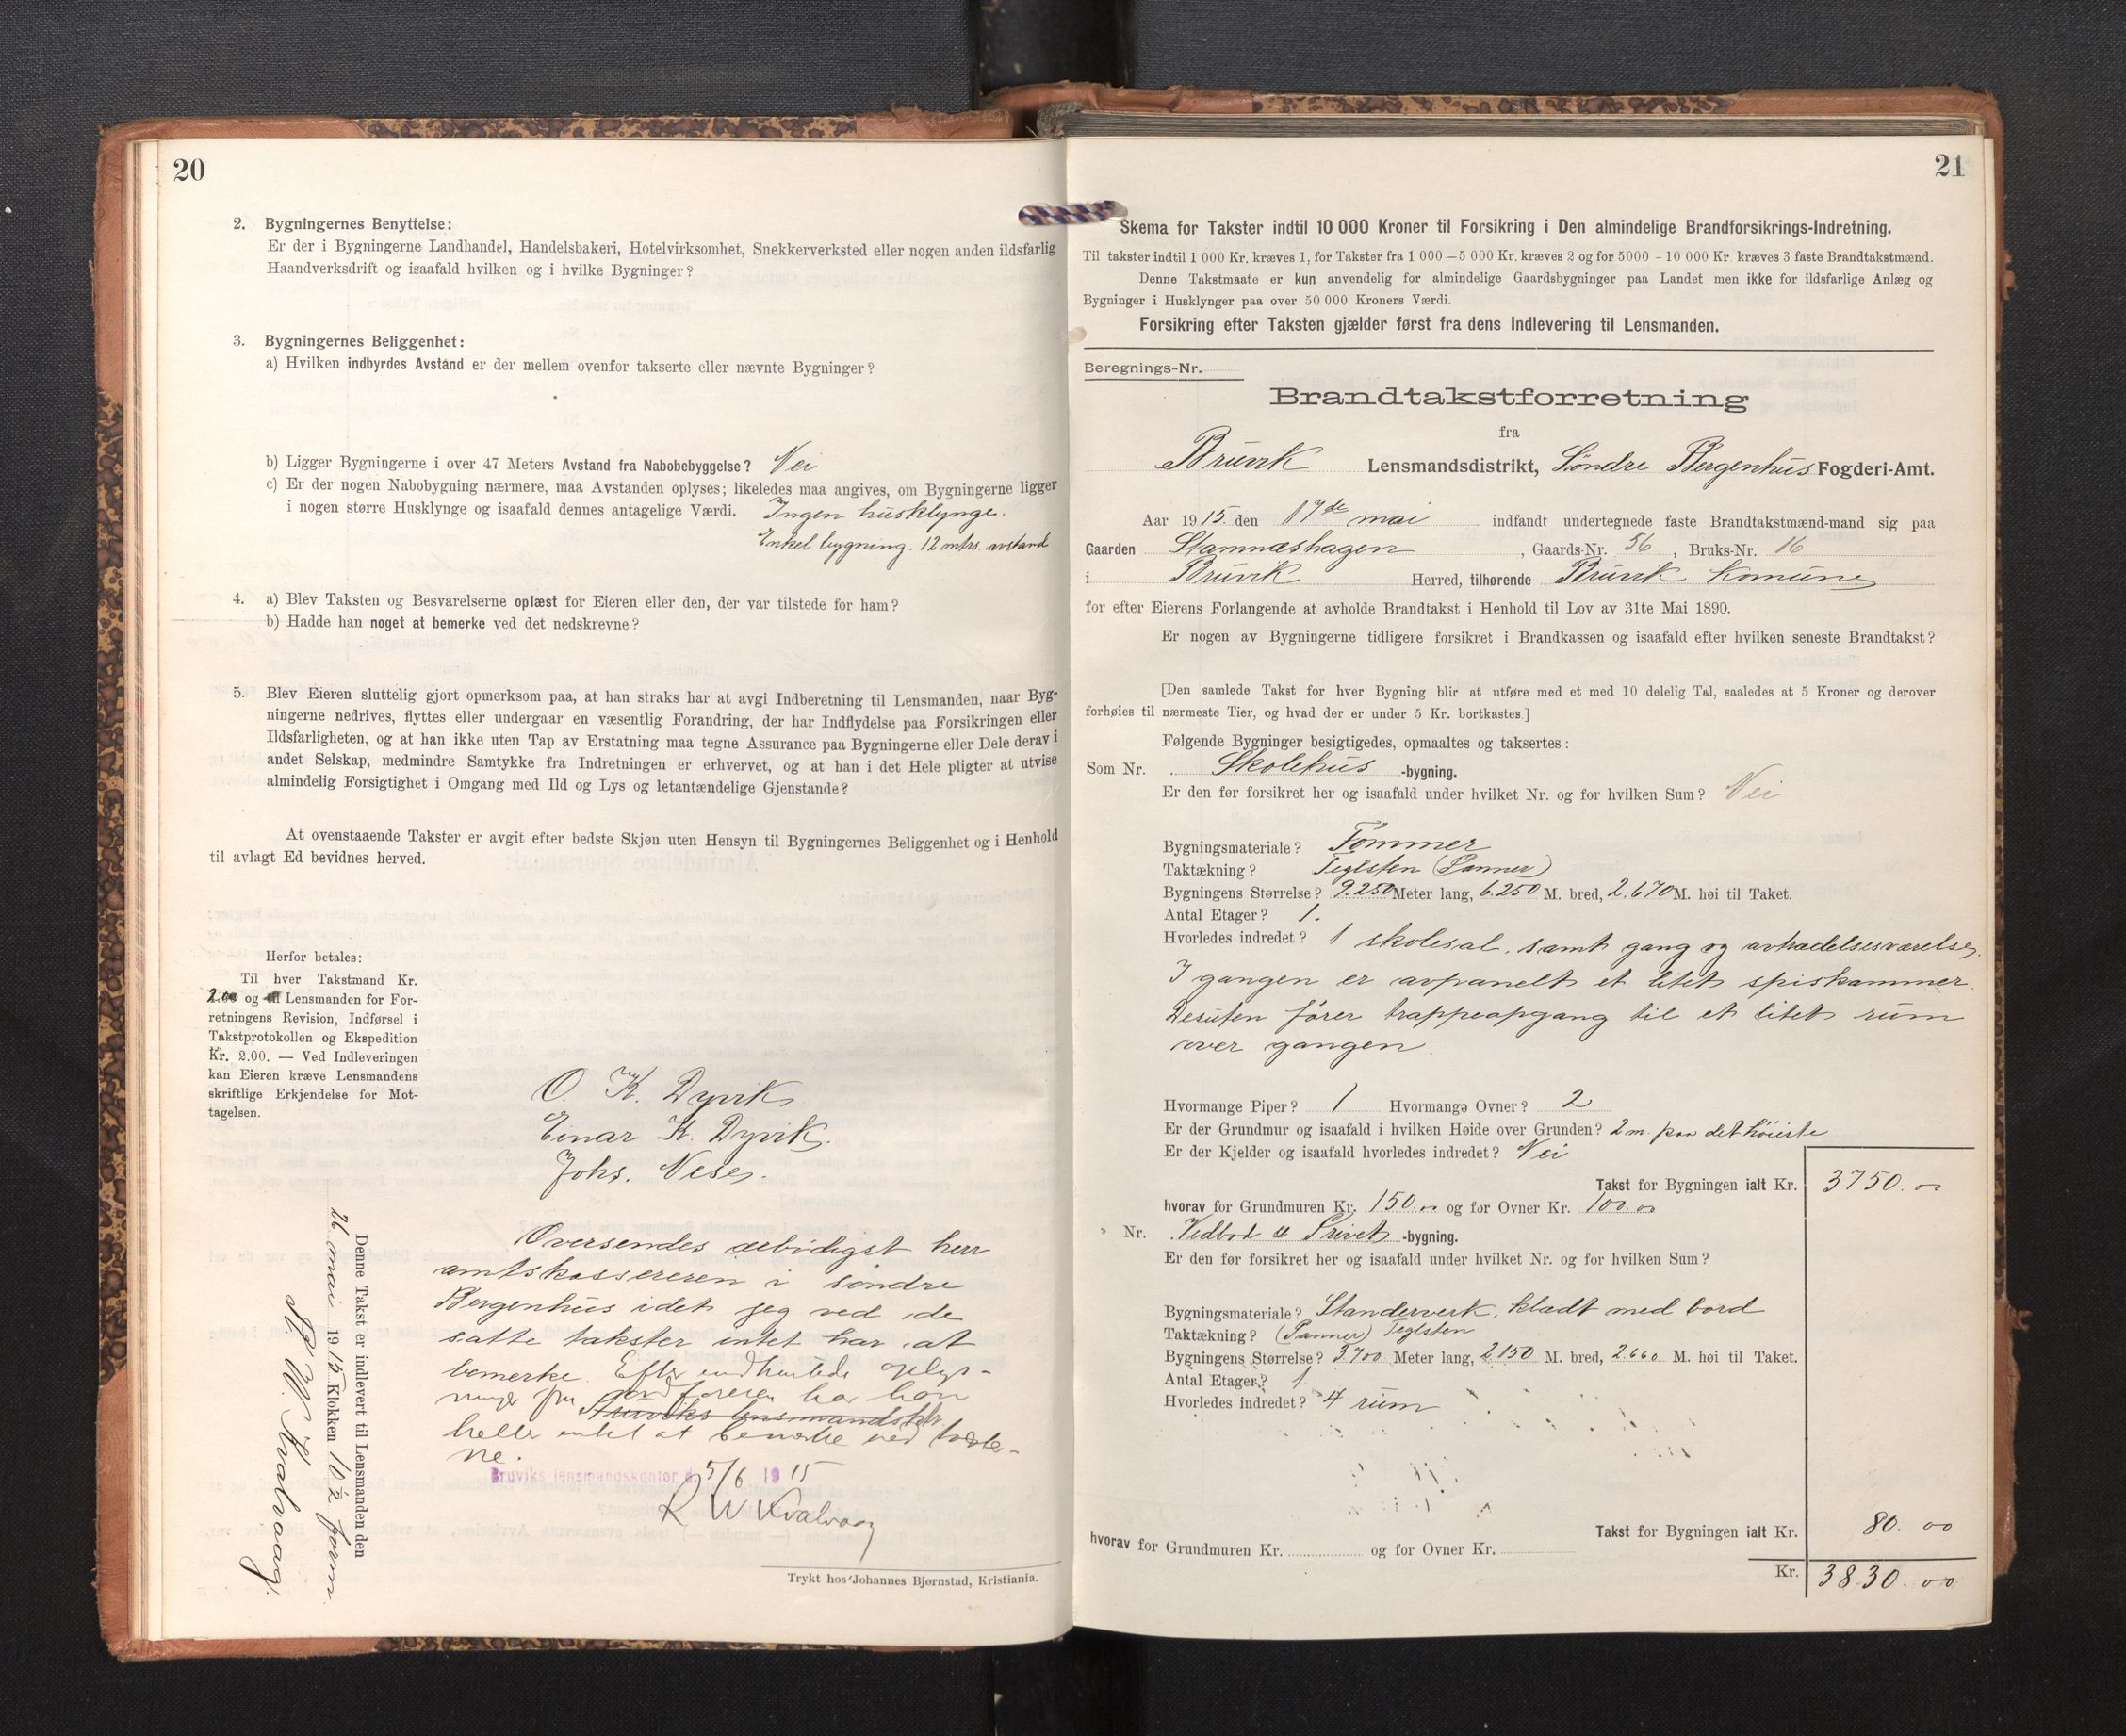 20
2. Bygningernes Benyttelse:
Er der i Bygningerne Landhandel, Handelsbakeri, Hotelvirksomhet, Snekkerverksted eller nogen anden ildsfarlig
Haandverksdrift og isaafald hvilken og i hvilke Bygninger?
3. Bygningernes Beliggenhet:
a) Hvilken indbyrdes Avstand er der mellem ovenfor takserte eller nævnte Bygninger?
b) Ligger Bygningerne i over 47 Meters Avstand fra Nabobebyggelse? Nei
c) Er der nogen Nabobygning nærmere, maa Avstanden oplyses; likeledes maa angives, om Bygningerne ligger
i nogen større Husklynge og isaafald dennes antagelige Værdi. Ingen husklynge.
Enkel bygning. 12 mtrs. avstand
4. a) Blev Taksten og Besvarelserne oplæst for Eieren eller den, der var tilstede for ham?
b) Hadde han noget at bemerke ved det nedskrevne?
5. Blev Eieren sluttelig gjort opmerksom paa, at han straks har at avgi Indberetning til Lensmanden, naar Byg-
ningerne nedrives, flyttes eller undergaar en væsentlig Forandring, der har Indflydelse paa Forsikringen eller
Ildsfarligheten, og at han ikke uten Tap av Erstatning maa tegne Assurance paa Bygningerne eller Dele derav i
andet Selskap, medmindre Samtykke fra Indretningen er erhvervet, og at han i det Hele pligter at utvise
almindelig Forsigtighet i Omgang med Ild og Lys og letantændelige Gjenstande?
At ovenstaaende Takster er avgit efter bedste Skjøn uten Hensyn til Bygningernes Beliggenhet og i Henhold
til avlagt Ed bevidnes herved.
Herfor betales:
Til hver Takstmand Kr.
2.00 og til Lensmanden for For-
retningens Revision, Indførsel i
Takstprotokollen og Ekspedition
Kr. 2.00. — Ved Indleveringen
kan Eieren kræve Lensmandens
skriftlige Erkjendelse for Mot-
tagelsen.
O. K. Dyvik
Einar K. Dyvik.
Johs. Nese.
Oversendes ærbödigst herr
amtskassereren i söndre
Bergenhus idet jeg ved de
satte takster intet har at
bemerke. Efter indhentede oplys-
ninger fra ordföreren har han
Bruviks lensmandsktr.
heller intet at bemerke ved takste-
ne.
Bruviks lensmandskontor d. 5/6 1915
R W Kvalvaag
Denne Takst er indlevert til Lensmanden den
26 mai 1915 Klokken 10 1/2 form.
R. W. Kvalvaag.
Trykt hos Johannes Bjørnstad, Kristiania.
21
Skema for Takster indtil 10 000 Kroner til Forsikring i Den almindelige Brandforsikrings-Indretning.
Til takster indtil 1 000 Kr. kræves 1, for Takster fra 1 000—5 000 Kr. kræves 2 og for 5000 - 10 000 Kr. kræves 3 faste Brandtakstmænd.
Denne Takstmaate er kun anvendelig for almindelige Gaardsbygninger paa Landet men ikke for ildsfarlige Anlæg og
Bygninger i Husklynger paa over 50 000 Kroners Værdi.
Forsikring efter Taksten gjælder først fra dens Indlevering til Lensmanden.
Beregnings-Nr.
Brandtakstforretning
fra
Bruvik Lensmandsdistrikt, Söndre Bergenhus Fogderi-Amt.
Aar 1915. den 17de mai indfandt undertegnede faste Brandtakstmænd-mand sig paa
Gaarden Stamnæshagen, Gaards-Nr. 56, Bruks-Nr. 16
i Bruvik Herred, tilhørende Bruvik komune
for efter Eierens Forlangende at avholde Brandtakst i Henhold til Lov av 31te Mai 1890.
Er nogen av Bygningerne tidligere forsikret i Brandkassen og isaafald efter hvilken seneste Brandtakst?
[Den samlede Takst for hver Bygning blir at utføre med et med 10 delelig Tal, saaledes at 5 Kroner og derover
forhøies til nærmeste Tier, og hvad der er under 5 Kr. bortkastes.]
Følgende Bygninger besigtigedes, opmaaltes og taksertes:
Som Nr. Skolehus -bygning.
Er den før forsikret her og isaafald under hvilket Nr. og for hvilken Sum? Nei
Bygningsmateriale? Tömmer
Taktækning? Teglsten (Panner)
Bygningens Størrelse? 9.250 Meter lang, 6.250 M. bred, 2.670 M. høi til Taket.
Antal Etager? 1.
Hvorledes indredet? 1 skolesal, samt gang og avtrædelsesværelse.
I gangen er avpanelt et litet spiskammer.
Desuten förer trappeopgang til et litet rum
over gangen
Hvormange Piper? 1 Hvormange Ovner? 2
Er der Grundmur og isaafald i hvilken Høide over Grunden? 2 m. paa det höieste
Er der Kjelder og isaafald hvorledes indredet? Nei
Takst for Bygningen ialt Kr. 3750.00
hvorav for Grundmuren Kr. 150.00 og for Ovner Kr. 100.00
" Nr. Vedbod & Privet -bygning.
Er den før forsikret her og isaafald under hvilket Nr. og for hvilken Sum?
Bygningsmateriale? Standerverk, klædt med bord
Taktækning? (Panner) Teglsten
Bygningens Størrelse? 3700 Meter lang, 2150 M. bred, 2660 M. høi til Taket.
Antal Etager? 1
Hvorledes indredet? 4 rum
Takst for Bygningen ialt Kr. 80.00
hvorav for Grundmuren Kr. og for Ovner Kr.
Kr. 3830.00